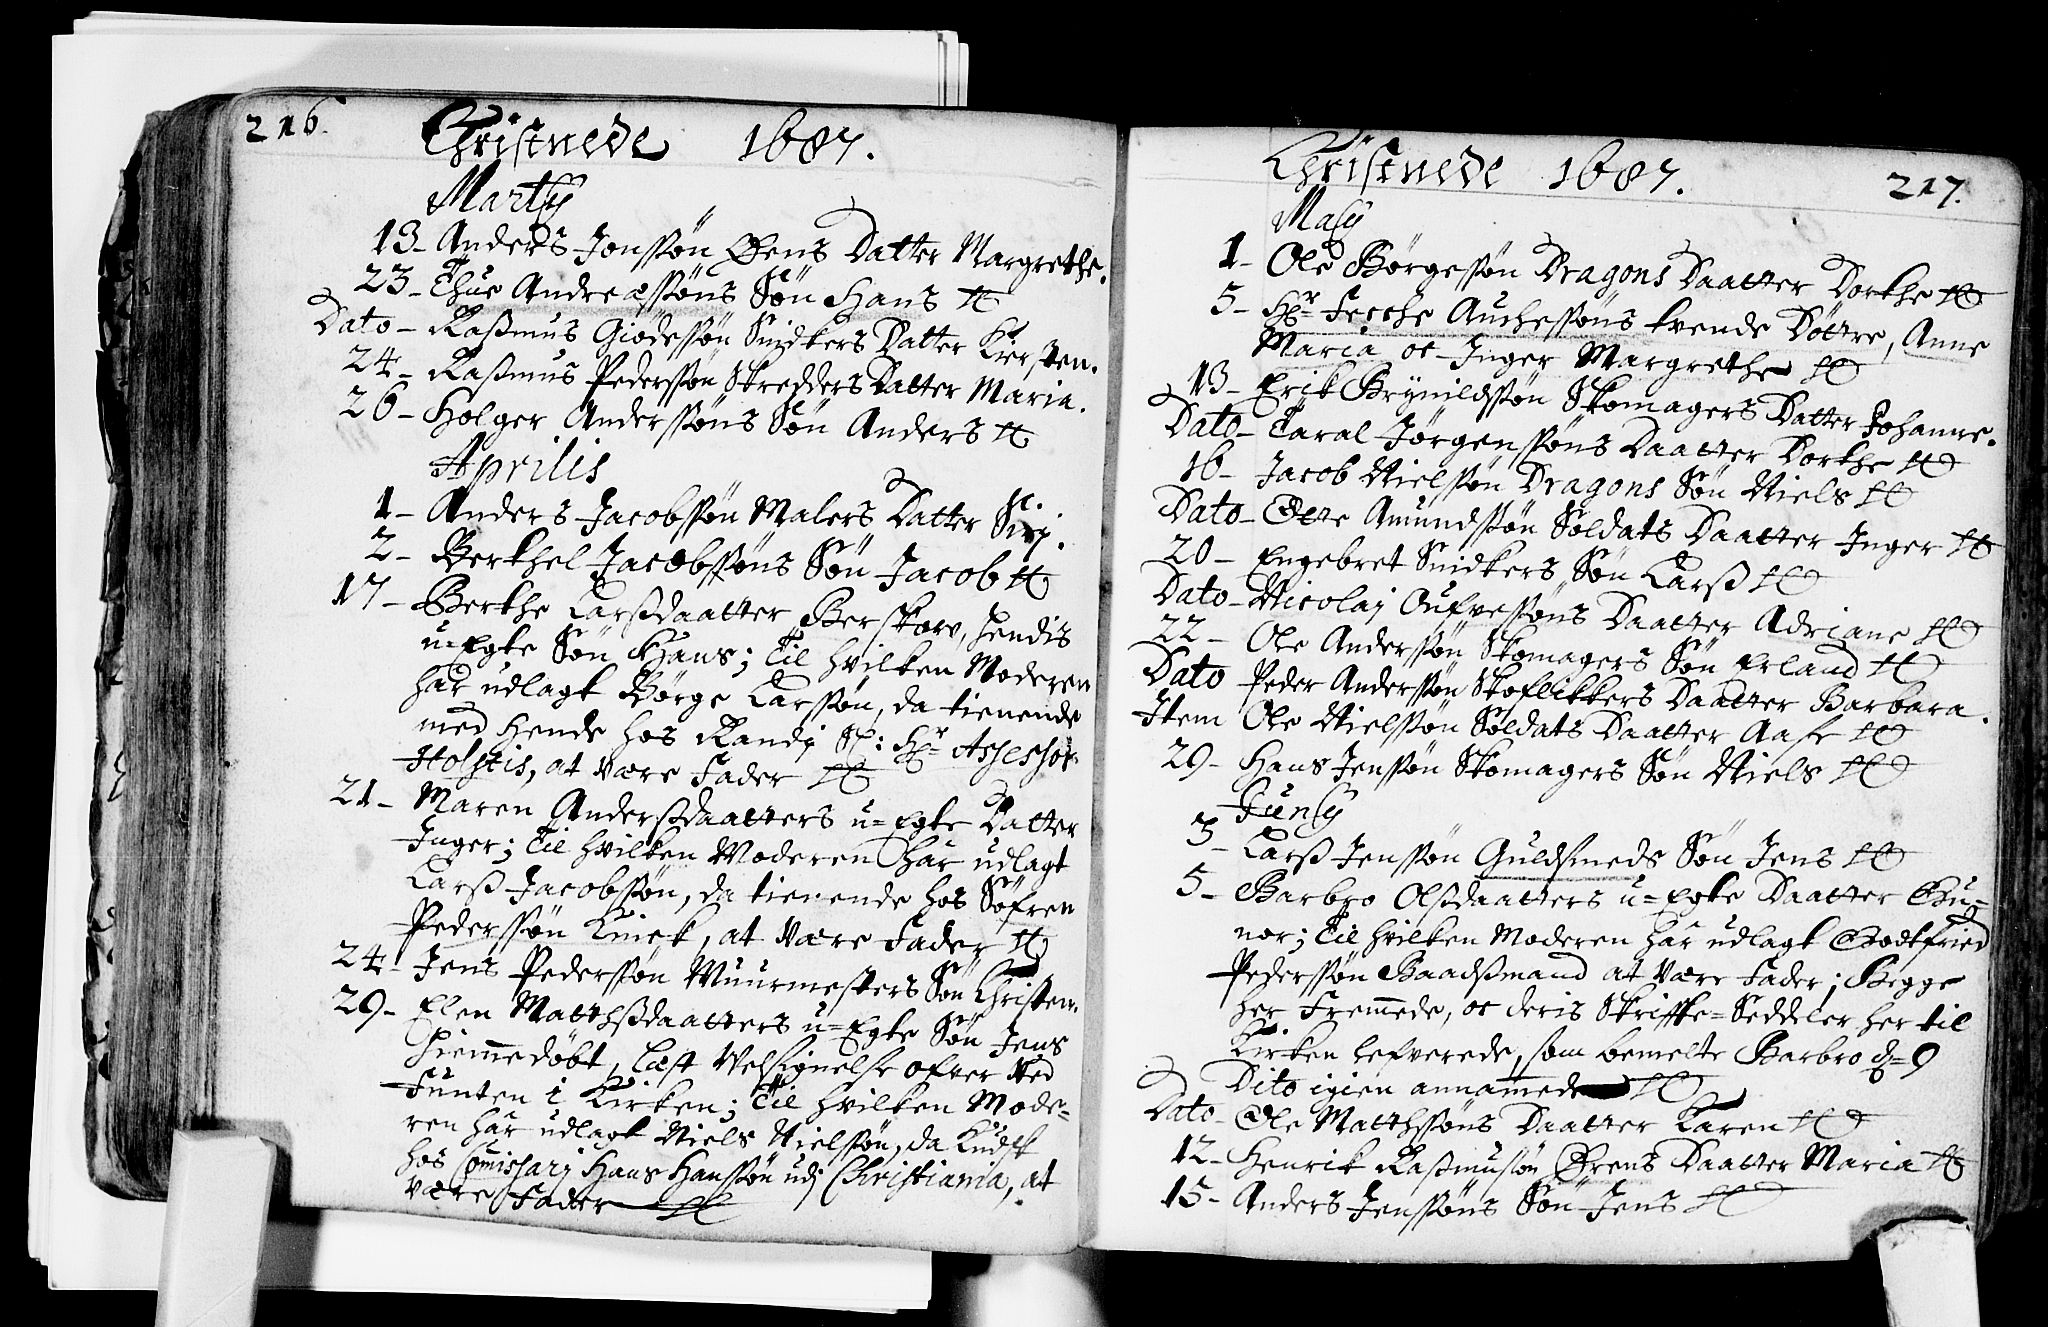 216.
Christnede 1687.
Martij
13 - Anders Jonssøn Øens Datter Margrethe.
23 - Thue Andreæssøns Søn Hans
Dato - Rasmus Giødessøn Snidkers Datter Kiersten.
24 - Rasmus Pederssøn Skredders Datter Maria.
26 - Holger Anderssøns Søn Anders
Aprilis
1 - Anders Jacobssøn Malers Datter Siri.
2 - Berthel Jacobssøns Søn Jacob
17 - Berthe Larssdaatter Berskow, hendis
u-Egte Søn Hans; Til hvilken Moderen
har udlagt Børge Larssøn, da tienende
med hende hos Randj S: Hr Assessor
Holstis, at være Fader
21 - Maren Anderssdaatters u-Egte Datter
Inger; Til hvilken Moderen har udlagt
Larss Jacobssøn, da tienende hos Søfren
Pederssøn Kinck, at være Fader
24 - Jens Pederssøn Muurmesters Søn Christen.
29 - Elen Matthssdaatters u-Egte Søn Jens
Hiemmedøbt, Læst Velsignelse ofver Ved
Funten i Kirken; Til hvilken Mode-
ren har udlagt Niels Nielssøn, da Kudsk
hos Comissarj Hans Hanssøn udj Christiania, at
være Fader
Christnede 1687. 217.
Maij
1 - Ole Børgessøn Dragons Daatter Dorthe
5 - Hr Jesche Auchessøns tvende Døttre, Anne
Maria oc Inger Margrethe
13 - Erik Brynildssøn Skomagers Datter Johanne.
Dato - Taral Jørgenssøns Daatter Dorthe
16 - Jacob Nielssøn Dragons Søn Niels
Dato - Otte Amundssøn Soldats Daatter Inger
20 - Engebret Snidkers Søn Larss
Dato - Nicolaj Oufvessøns Daatter Adriane
22 - Ole Anderssøn Skomagers Søn Erland
Dato Peder Anderssøn Skoflikkers Daatter Barbara.
Item Ole Nielssøn Soldats Daatter Aase
29 - Hans Jenssøn Skomagers Søn Niels
Junij
3 - Larss Jenssøn Guldsmeds Søn Jens
5 - Barbro Olssdaatters u-Egte Daatter Gu-
nor; Til hvilken Moderen har udlagt Godtfried
Pederssøn Baadssmand at være Fader; Begge
her Fremmede, oc deris Skrifte-Seddeler her til
Kirken lefverede, som bemelte Barbro d. 9
Dito igien annammede
Dato - Ole Matthssøns Daatter Karen
12 - Henrik Rasmussøn Ørens Daatter Maria
15 - Anders Jenssøns Søn Jens